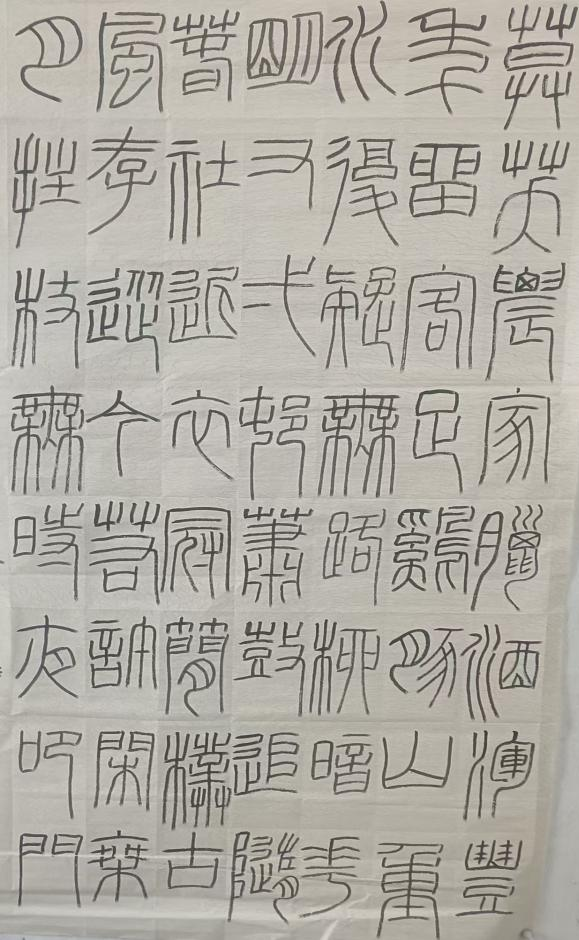 莫笑農家臘酒渾豐
年留客足雞豚山重
水復疑無路柳暗花
明又弌邨蕭鼓追隨
春社近衣冠簡樸古
風存從今若許閑乘
月拄杖無時夜叩門